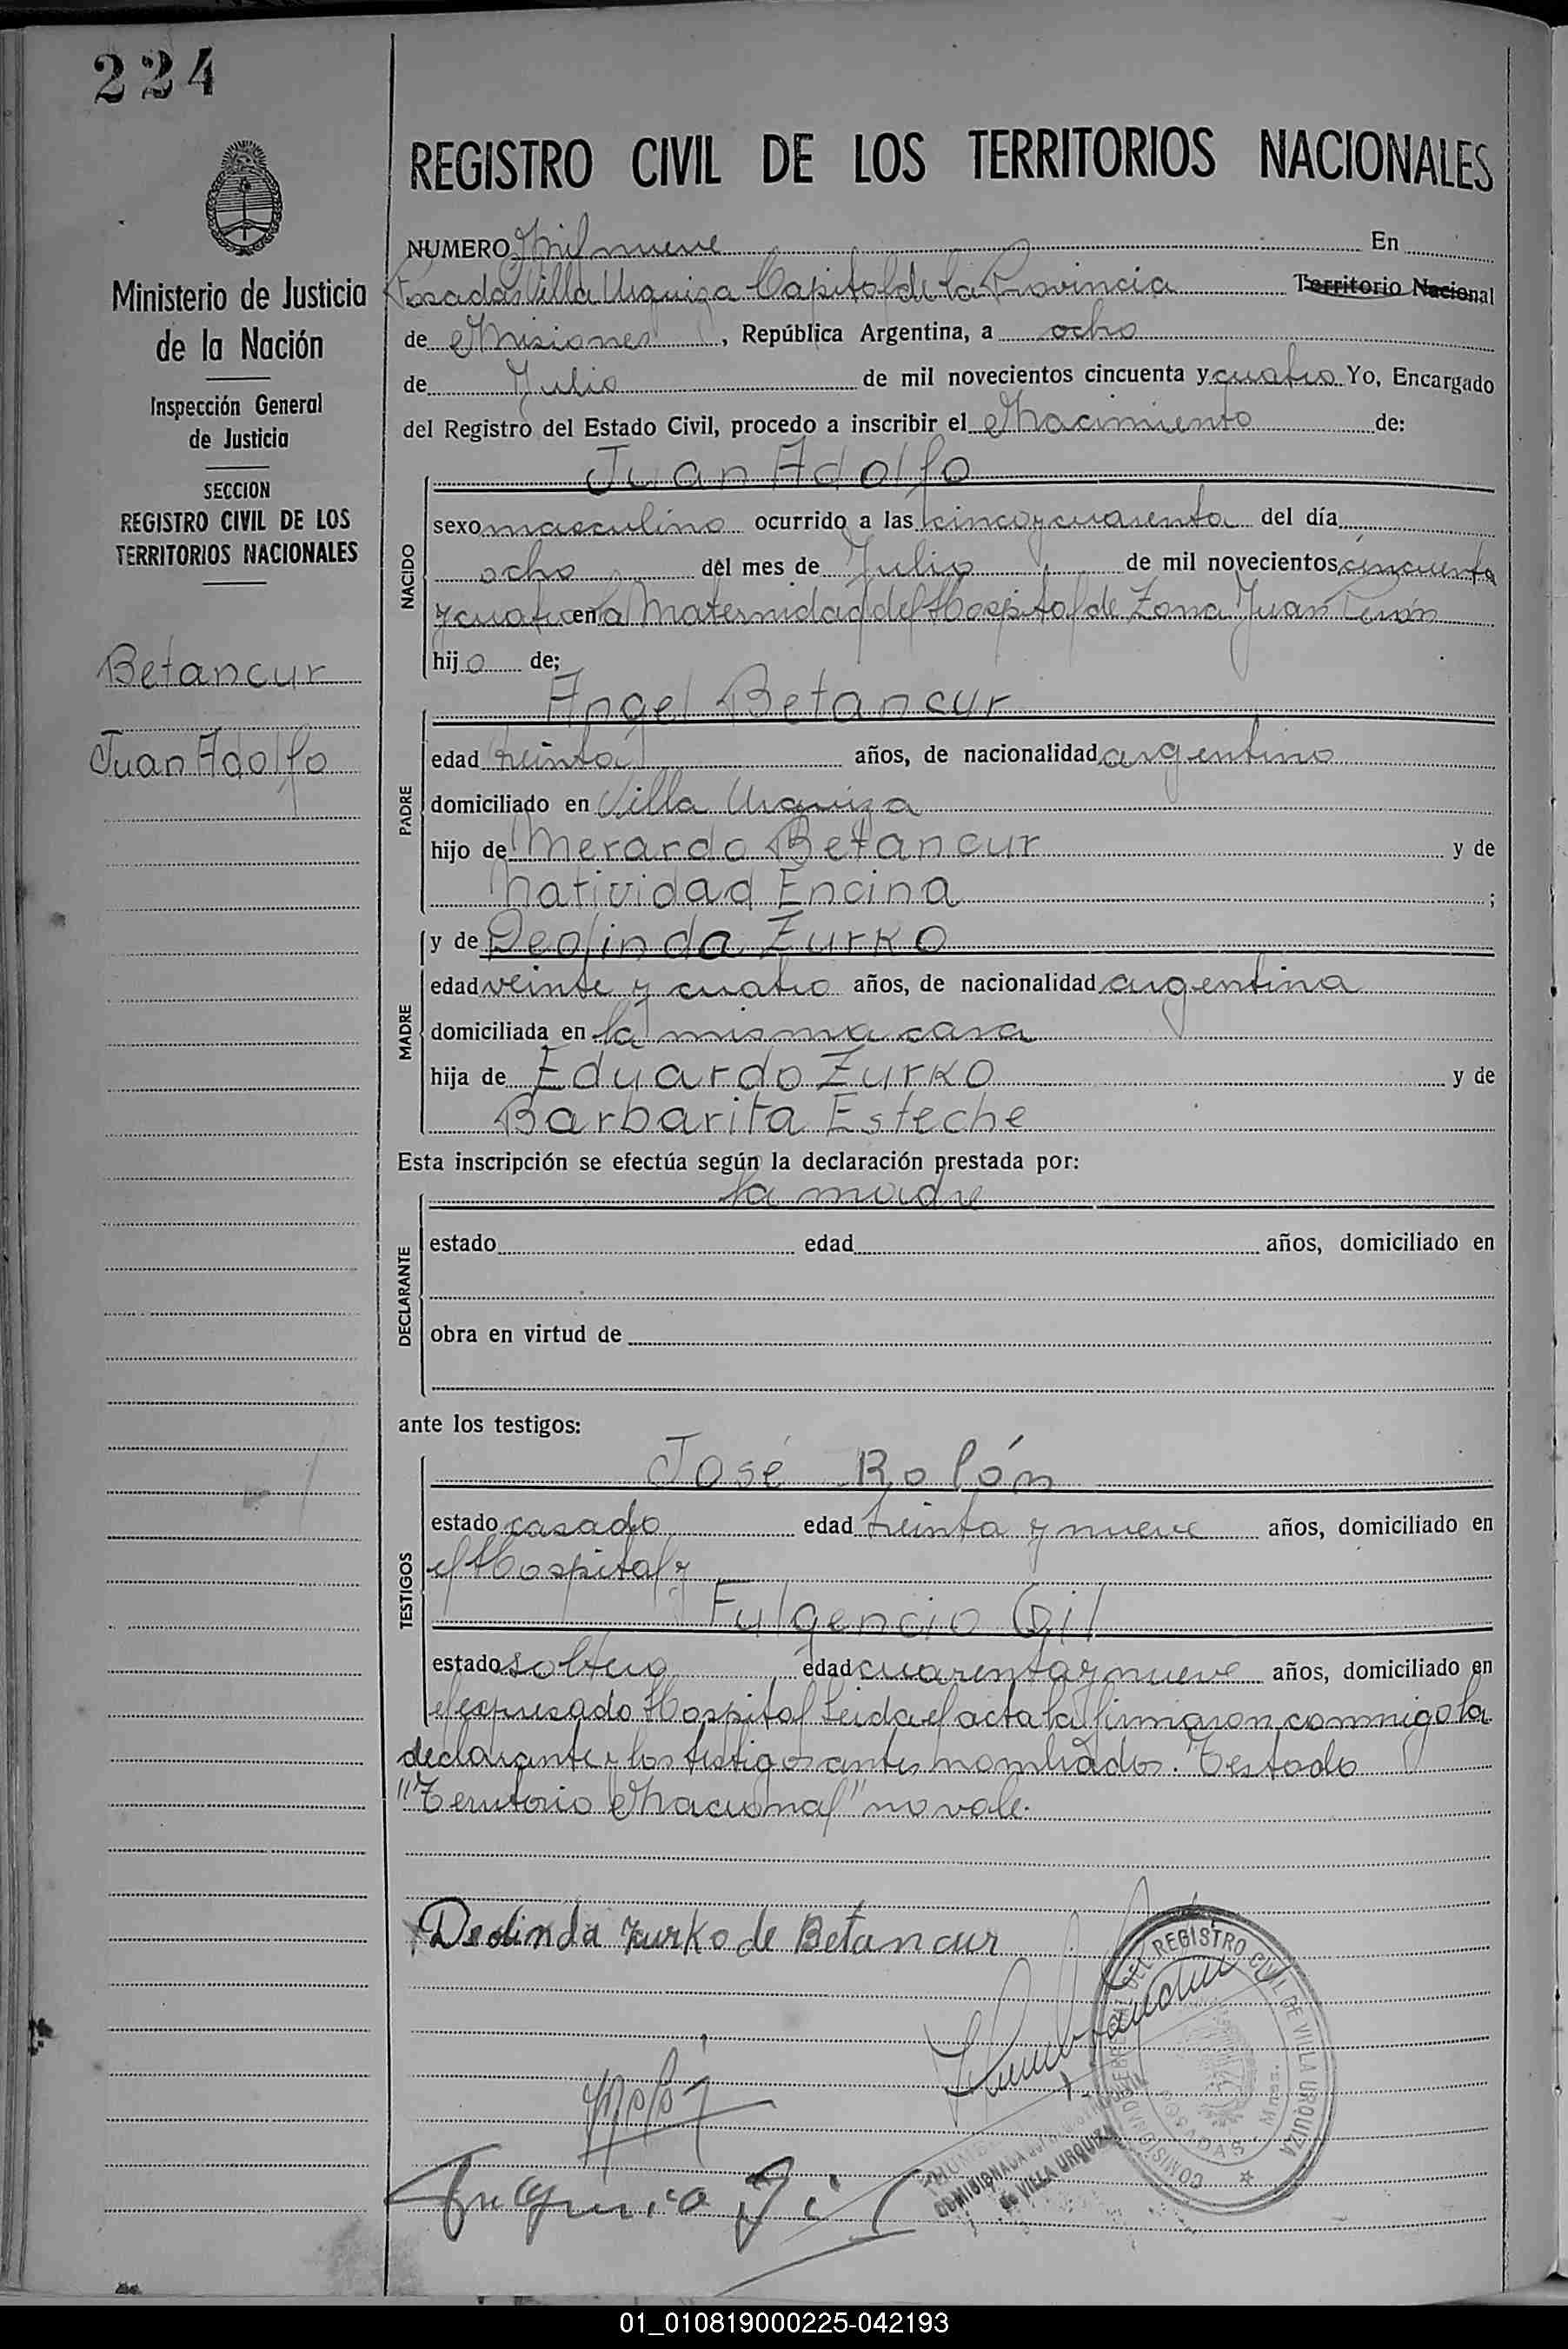 224
REGISTRO CIVIL DE LOS TERRITORIOS NACIONALES
Ministerio de Justicia
de la Nación
Inspección General
de Justicia
SECCION
REGISTRO CIVIL DE LOS
TERRITORIOS NACIONALES
Betancur
Juan Adolfo
NUMERO Mil nueve En
Posadas Villa Urquiza Capital de la Provincia Territorio Nacional
de Misiones, República Argentina, a ocho
de Julio de mil novecientos cincuenta y cuatro Yo, Encargado
del Registro del Estado Civil, procedo a inscribir el Nacimiento de:
NACIDO
Juan Adolfo
sexo masculino ocurrido a las cinco y cuarenta del día
ocho del mes de Julio de mil novecientos cincuenta
y cuatro en la Maternidad del Hospital de Zona Juan Perón
hijo de;
PADRE
Angel Betancur
edad treinta años, de nacionalidad argentino
domiciliado en Villa Urquiza
hijo de Merardo Betancur y de
Natividad Encina ;
MADRE
y de Deolinda Zurko
edad veinte y cuatro años, de nacionalidad argentina
domiciliada en la misma casa
hija de Eduardo Zurko y de
Barbarita Esteche
Esta inscripción se efectúa según la declaración prestada por:
DECLARANTE
la madre
estado edad años, domiciliado en
obra en virtud de
ante los testigos:
TESTIGOS
José Rolón
estado casado edad treinta y nueve años, domiciliado en
el Hospital y
Fulgencio Gil
estado soltero edad cuarenta y nueve años, domiciliado en
el expresado Hospital Leida el acta la firmaron conmigo la
declarante y los testigos antes nombrados. Testado
"Territorio Nacional" no vale.
Deolinda Zurko de Betancur
DEL REGISTRO CIVIL DE VILLA URQUIZA
POSADAS - Mnes.
de VILLA URQUIZA
01_010819000225-042193